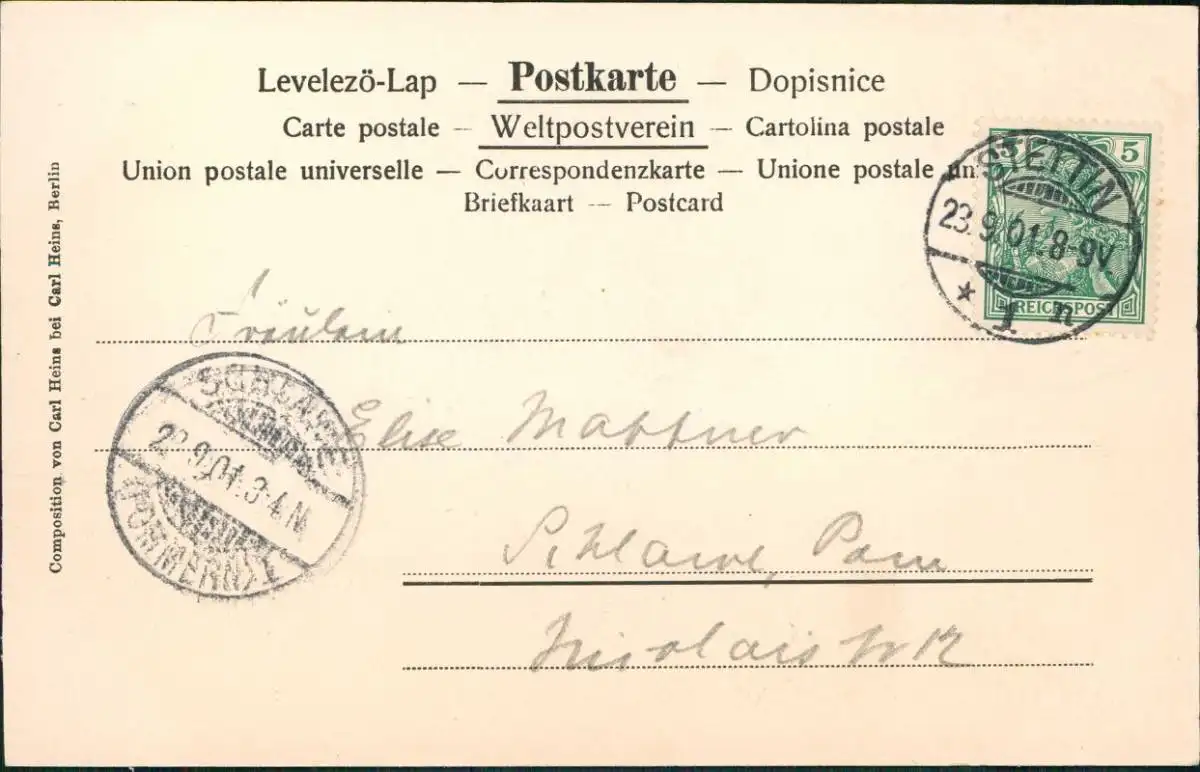 Levelezö-Lap — Postkarte — Dopisnice
Carte postale — Weltpostverein — Cartolina postale
Union postale universelle — Correspondenzkarte — Unione postale un
Briefkaart — Postcard
5
STETTIN
23.9.01.8-9V.
* 1 n
REICHSPOST
Fräulein
Elise
Schlawe, Pom
SCHLAWE
9.01.3-4.N.
(POMMERN) I
Composition von Carl Heins bei Carl Heins, Berlin